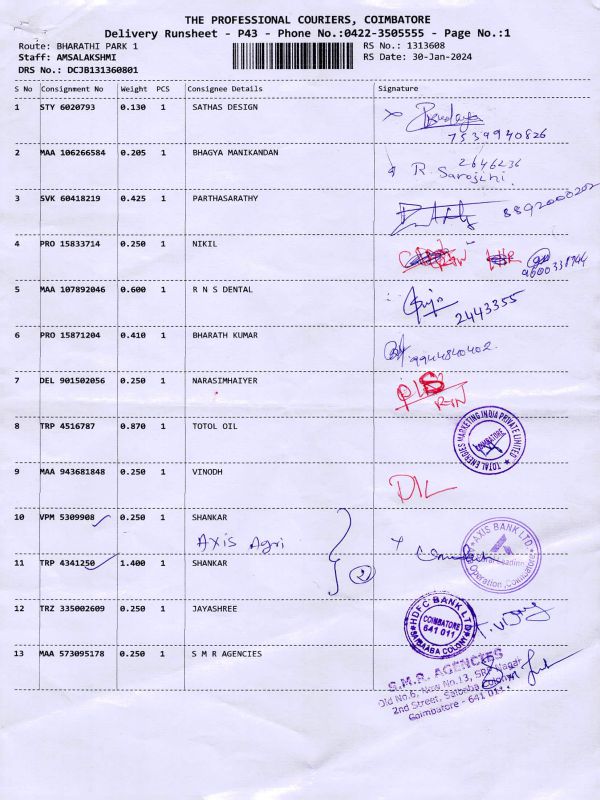 THE PROFESSIONAL COURIERS, COIMBATORE
Delivery Runsheet - P43 - Phone No.:0422-3505555 - Page No.:1
Route: BHARATHI PARK 1 RS No.: 1313608
Staff: AMSALAKSHMI RS Date: 30-Jan-2024
DRS No.: DCJB131360801
S No Consignment No Weight PCS Consignee Details Signature
1 STY 6020793 0.130 1 SATHAS DESIGN
7539940826
2 MAA 106266584 0.205 1 BHAGYA MANIKANDAN 2646236
R. Sarojini.
3 SVK 60418219 0.425 1 PARTHASARATHY 8892000202
4 PRO 15833714 0.250 1 NIKIL
9600338744
5 MAA 107892046 0.600 1 R N S DENTAL
2443355
6 PRO 15871204 0.410 1 BHARATH KUMAR
9944840402.
7 DEL 901502056 0.250 1 NARASIMHAIYER
8 TRP 4516787 0.870 1 TOTOL OIL
TOTAL ENERGIES MARKETING INDIA PRIVATE LIMITED
COIMBATORE
9 MAA 943681848 0.250 1 VINODH
DIL
10 VPM 5309908 0.250 1 SHANKAR
Axis Agri
AXIS BANK LTD
Operation, Coimbatore
11 TRP 4341250 1.400 1 SHANKAR
2
12 TRZ 335002609 0.250 1 JAYASHREE
HDFC BANK LTD
COIMBATORE
641 011
SAIBABA COLONY
13 MAA 573095178 0.250 1 S M R AGENCIES
S.M.R. AGENCIES
Old No.6, New No.13, SRP Nagar
2nd Street, Saibaba Colony
Coimbatore - 641 011